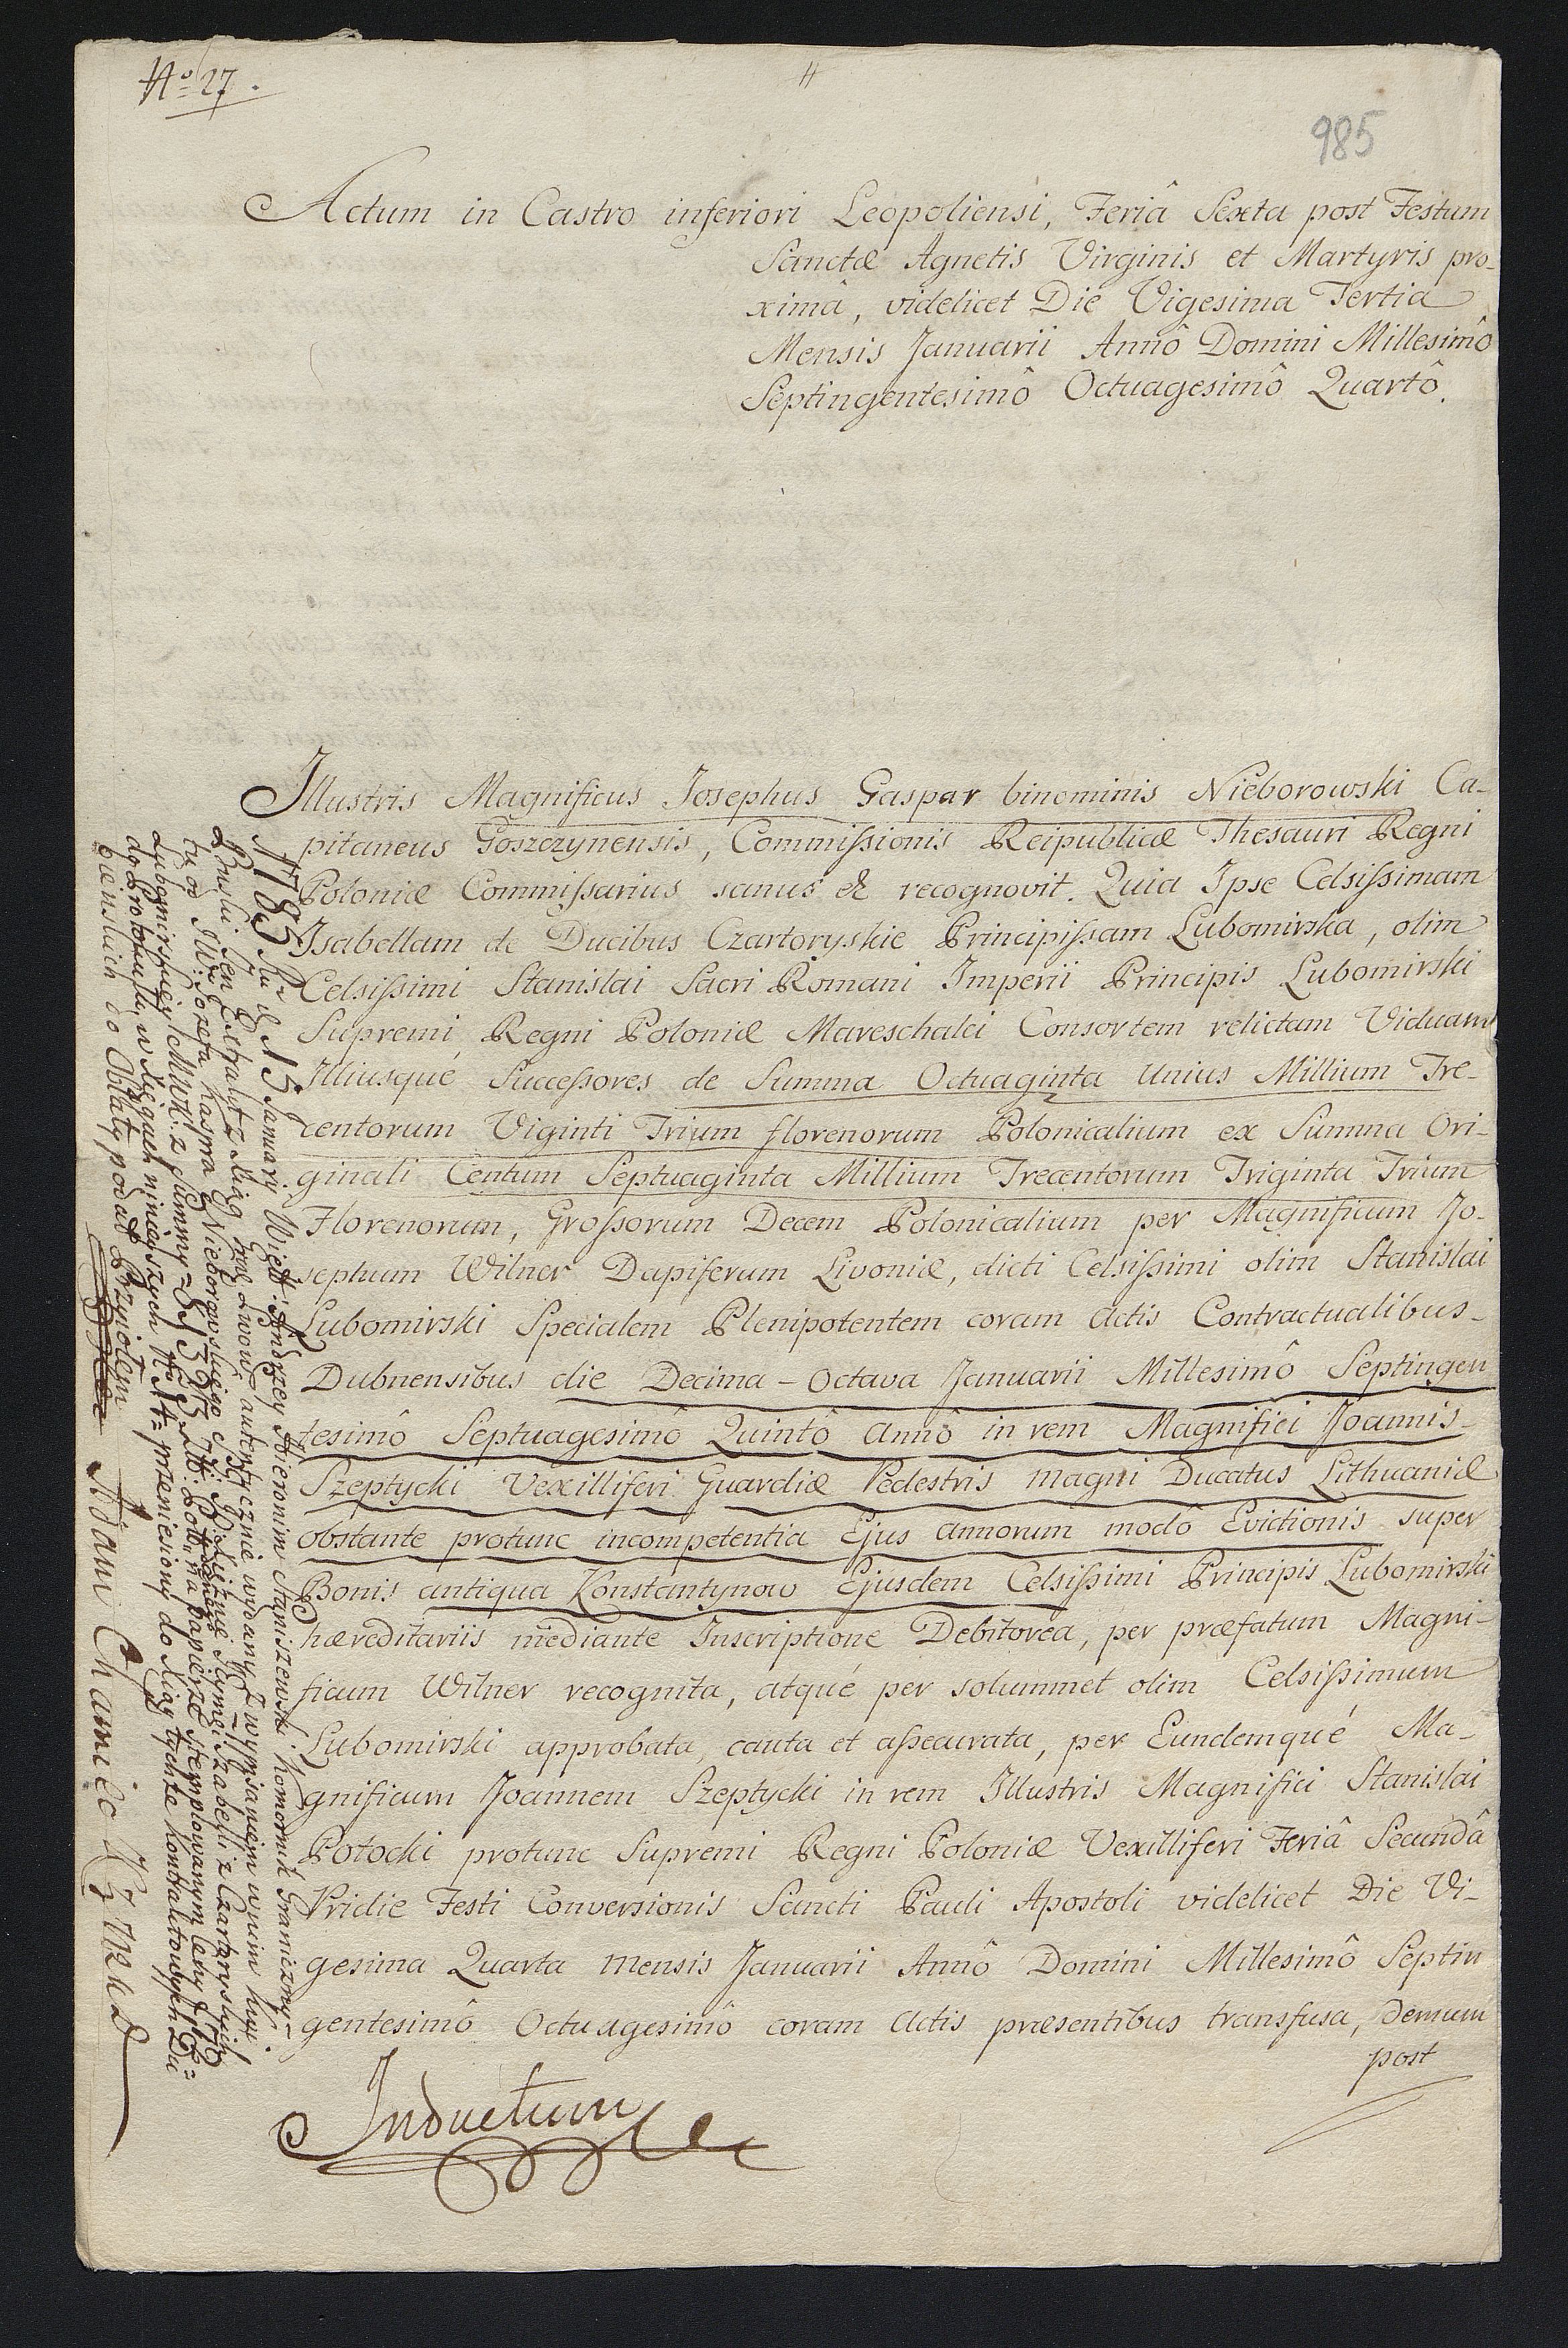 No 27.
985
Actum in Castro inferiori Leopoliensi, Feriâ Sexta post Festum
Sanctæ Agnetis Virginis et Martyris pro-
ximâ, videlicet Die Vigesima Tertia
Mensis Januarii Annô Domini Millesimô
Septingentesimô Octuagesimô Quartô.
Illustris Magnificus Josephus Gaspar binominis Nieborowski Ca-
pitaneus Goszczynensis, Commissionis Reipublicæ Thesauri Regni
Poloniæ Commissarius sanus & recognovit. Quia Ipse Celsissimam
Isabellam de Ducibus Czartoryskie Principissam Lubomirska, olim
Celsissimi Stanislai Sacri Romani Imperii Principis Lubomirski
Supremi Regni Poloniæ Mareschalci Consortem relictam Viduam
Illiusqué Successores de Summa Octuaginta Unius Millium Tre-
centorum Viginti Trium florenorum Polonicalium ex Summa Ori-
ginali Centum Septuaginta Millium Trecentorum Triginta Trium
Florenorum, Grossorum Decem Polonicalium per Magnificum Jo-
sephum Wilner Dapiferum Livoniæ, dicti Celsissimi olim Stanislai
Lubomirski Specialem Plenipotentem coram Actis Contractualibus
Dubnensibus die Decima-Octava Januarii Millesimô Septingen
tesimô Septuagesimô Quintô Annô in rem Magnifici Joannis
Szeptycki Vexilliferi Guardiæ Pedestris Magni Ducatus Lithuaniæ
obstante protunc incompetentia Ejus annorum modô Evictionis super
Bonis antiqua Konstantynow Ejusdem Celsissimi Principis Lubomirski
hæreditariis mediante Inscriptione Debitorea, per præfatum Magni-
ficum Wilner recognita, atqué per solummet olim Celsissimum
Lubomirski approbata, cauta et assecurata, per Eundemqué Ma-
gnificum Joannem Szeptycki in rem Illustris Magnifici Stanislai
Potocki protunc Supremi Regni Poloniæ Vexilliferi Feriâ Secundâ
Pridie Festi Conversionis Sancti Pauli Apostoli videlicet Die Vi-
gesima Quarta Mensis Januarii Annô Domini Millesimô Septin
gentesimô Octuagesimô coram Actis præsentibus transfusa, Demum
post
Inductum
1785 15 January Andrzey Hieronim Staniszewski Komornik Graniczny
Ten Extrakt z Xiąg Lwow autentycznie wydany z wypisaniem w nim
od JW: Jozefa Kaspra Nieborowskiego Izabelli z Czartoryskich
z Summy na papierze stemplowanym
do Protokułu, w Xięgach ninieyszych przeniesiony do Xiąg tychże Kontraktowych Du
bieńskich do Oblaty podał Przyiołem
Adam Chamiec